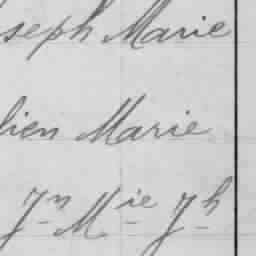 seph Marie
lien Marie
Jn Mie Jh